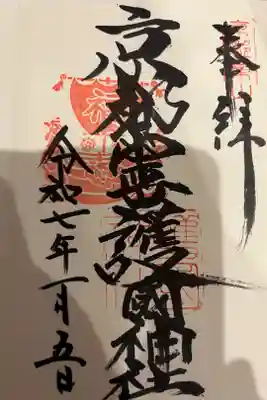 奉拝
京都霊山護國神社
令和七年一月五日